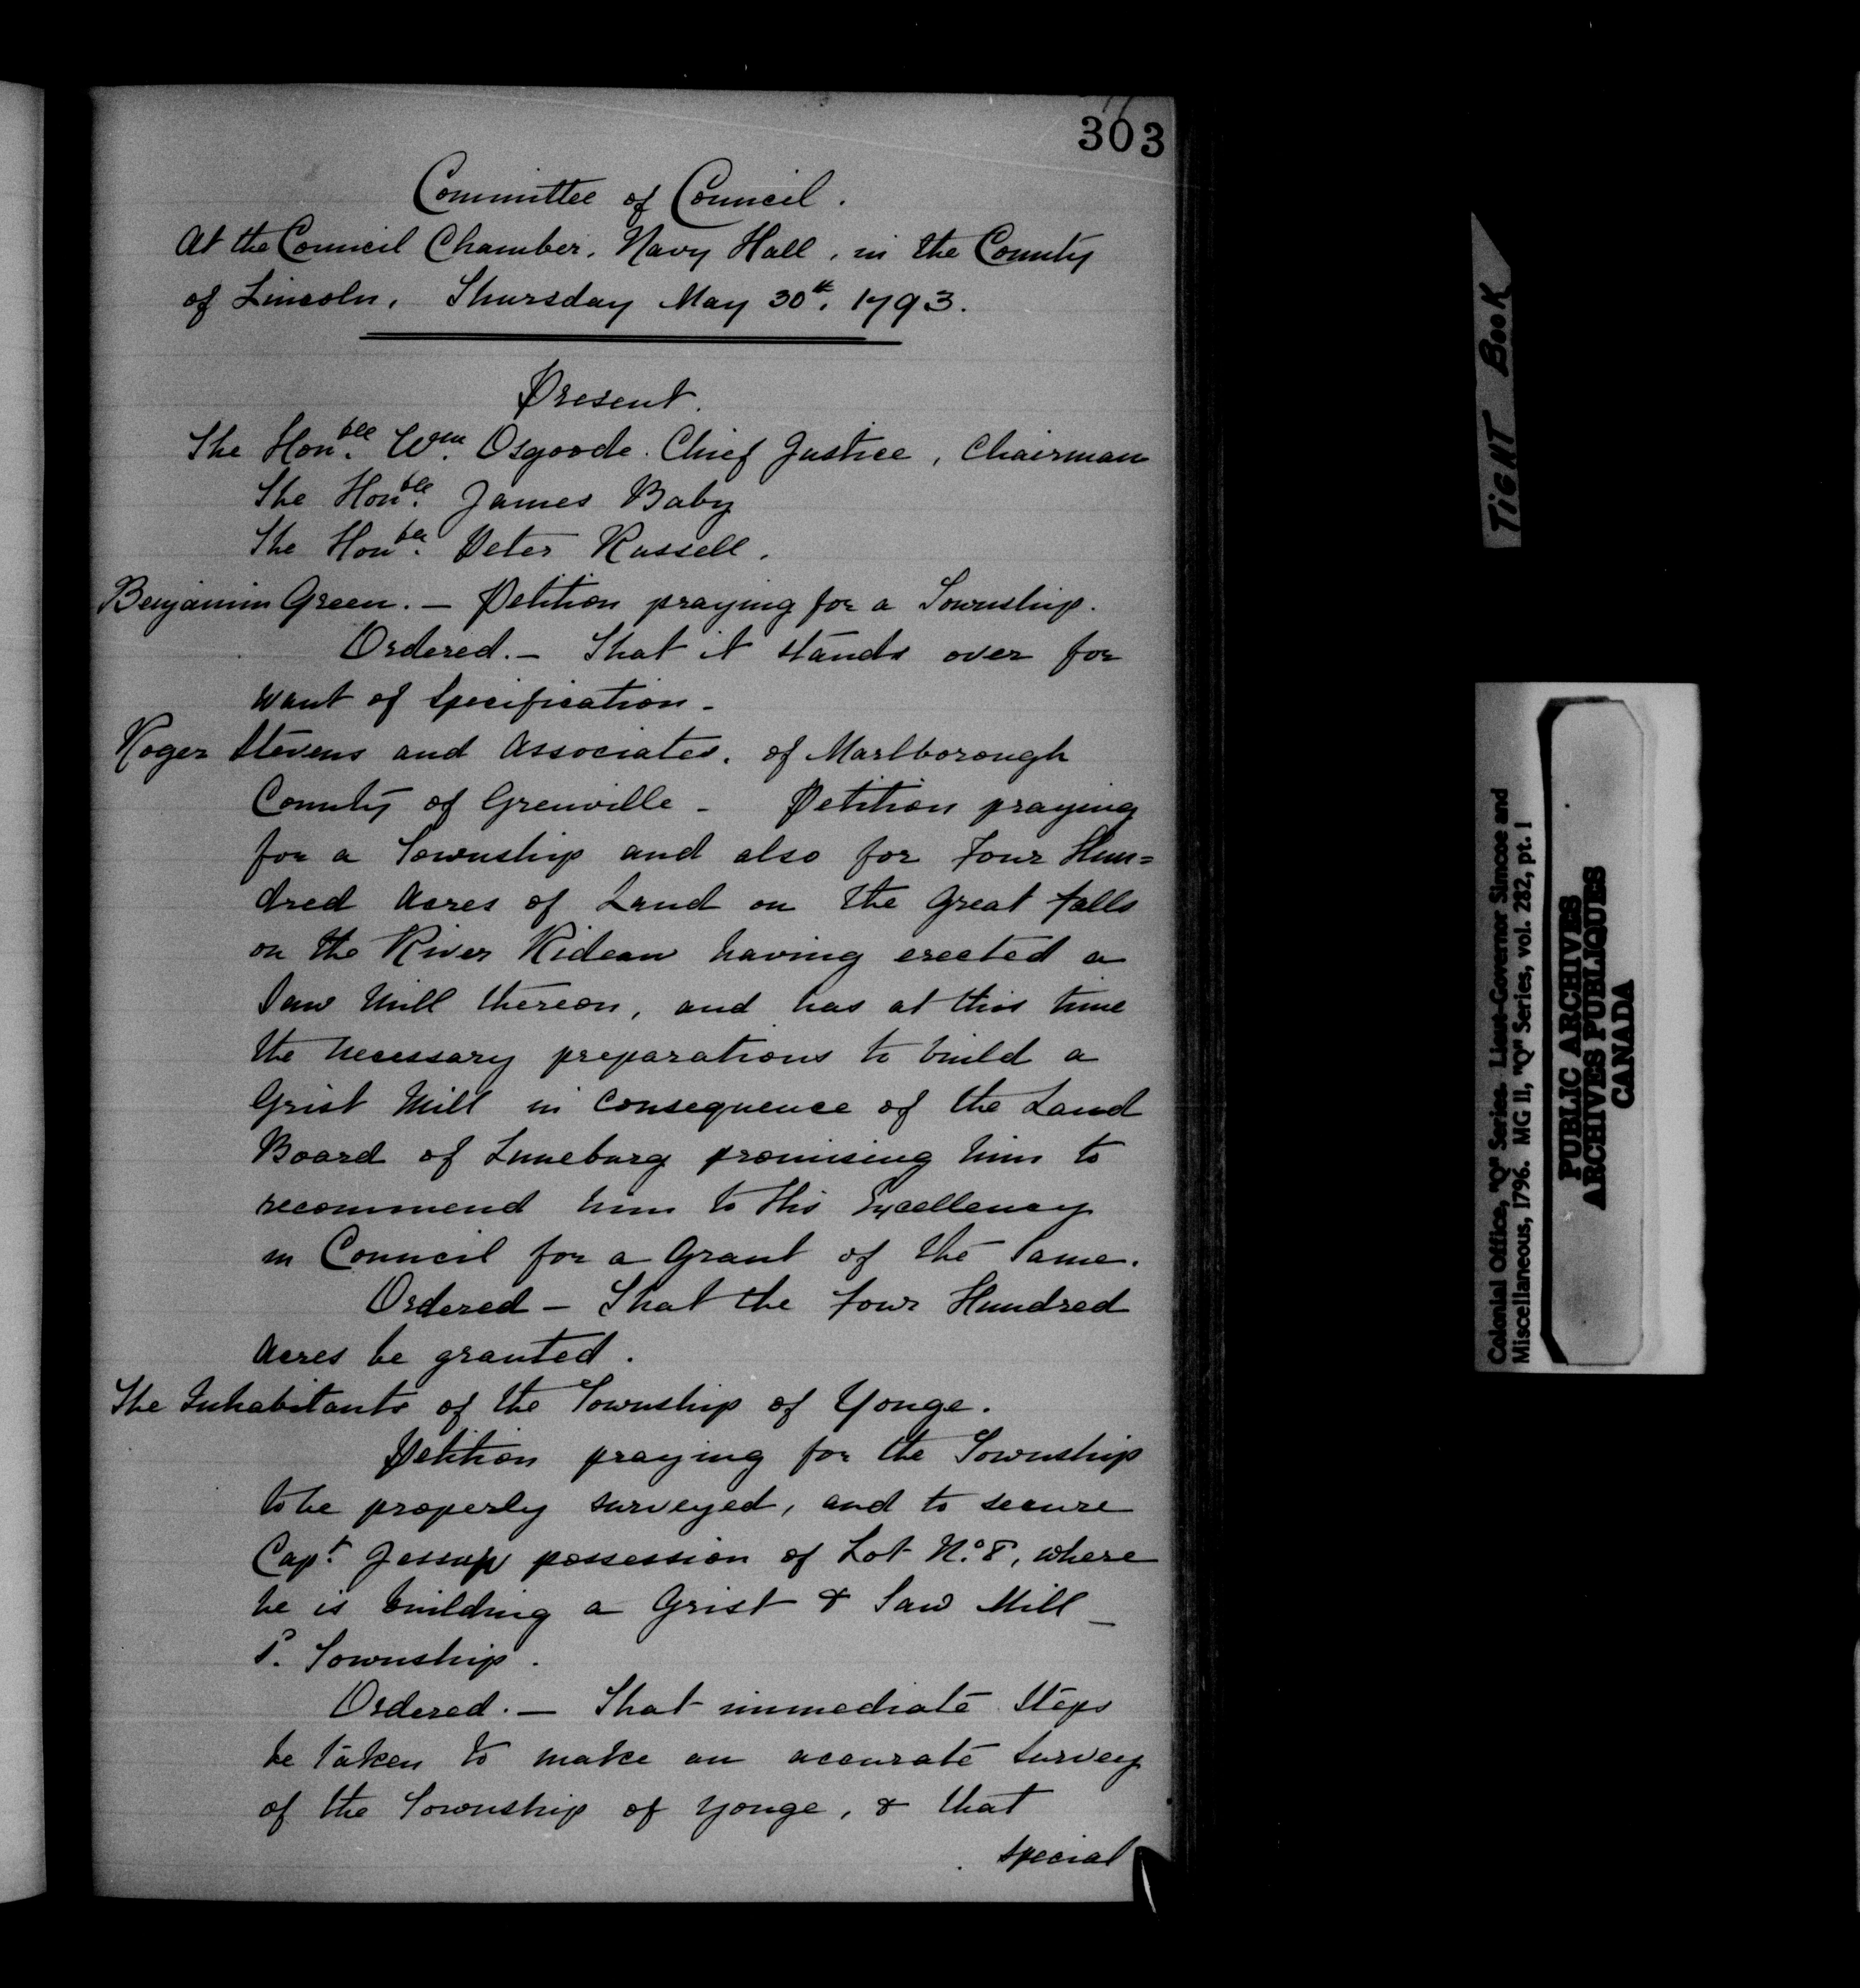 303
Committee of Council.
At the Council Chamber, Navy Hall, in the County
of Lincoln, Thursday May 30th, 1793.
Present.
The Honble. Wm. Osgoode. Chief Justice, Chairman
The Honble. James Baby
The Honble. Peter Russell.
Benjamin Green. — Petition praying for a Township.
Ordered. — That it stands over for
want of Specification -
Roger Stevens and Associates, of Marlborough
County of Grenville - Petition praying
for a Township and also for Four Hun=
dred Acres of Land on the Great falls
on the River Rideau having erected a
Saw Mill thereon, and has at this time
the necessary preparations to build a
Grist Mill in Consequence of the Land
Board of Luneburg promising him to
recommend him to His Excellency
in Council for a Grant of the Same.
Ordered — That the four Hundred
Acres be granted.
The Inhabitants of the Township of Yonge.
Petition praying for the Township
to be properly surveyed, and to secure
Capt. Jessup possession of Lot No. 8, where
he is building a Grist & Saw Mill _
Township.
Ordered. — That immediate Steps
be taken to make an accurate Survey
of the Township of Yonge, & that
special
TIGHT BOOK
Colonial Office, "Q" Series. Lieut-Governor Simcoe and
Miscellaneous, 1796. MG 11, "Q" Series, vol. 282, pt. 1
PUBLIC ARCHIVES
ARCHIVES PUBLIQUES
CANADA